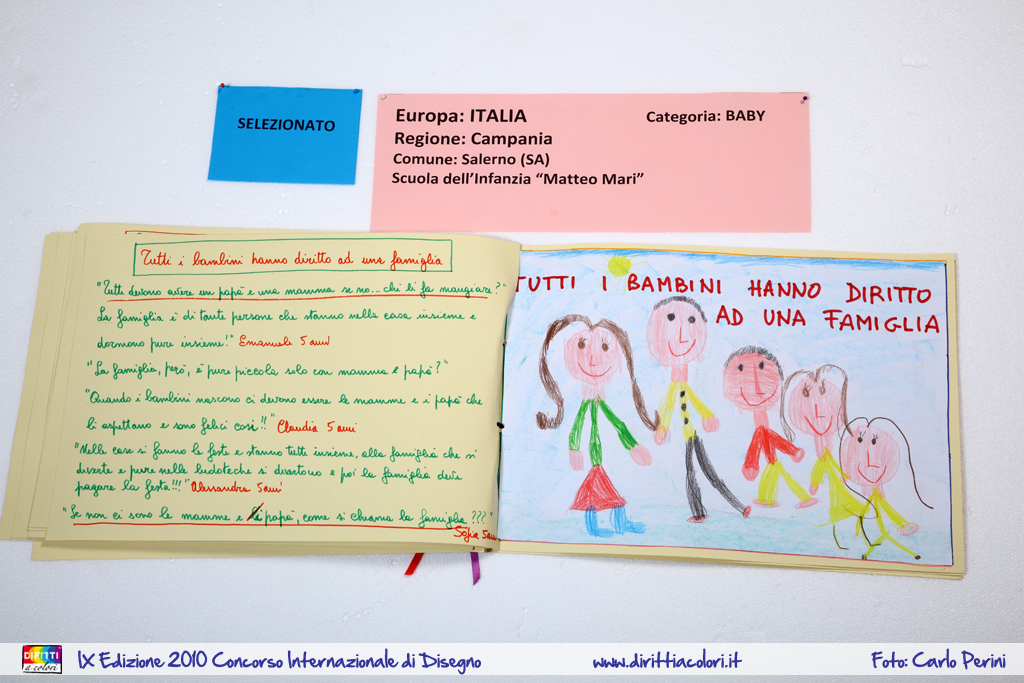 SELEZIONATO
Europa: ITALIA
Categoria: BABY
Regione: Campania
Comune: Salerno (SA)
Scuola dell'Infanzia "Matteo Mari"
Tutti i bambini hanno diritto ad una famiglia
"Tutti devono avere un papà e una mamma se no... chi li fa mangiare?"
La famiglia è di tante persone che stanno nella casa insieme e
dormono pure insieme!" Emanuele 5 anni
"La famiglia, però, è pure piccola solo con mamma e papà?"
"Quando i bambini nascono ci devono essere le mamme e i papà che
li aspettano e sono felici così!!" Claudia 5 anni
"Nelle case si fanno le feste e stanno tutti insieme, alla famiglia che si
diverte e pure nelle ludoteche si divertono e poi la famiglia deve
pagare la festa!!!" Alessandra 5 anni
"Se non ci sono le mamme e i papà, come si chiama la famiglia???"
Sofia 5 anni
TUTTI I BAMBINI HANNO DIRITTO
AD UNA FAMIGLIA
DIRITTI a colori
IX Edizione 2010 Concorso Internazionale di Disegno
www.dirittiacolori.it
Foto: Carlo Perini